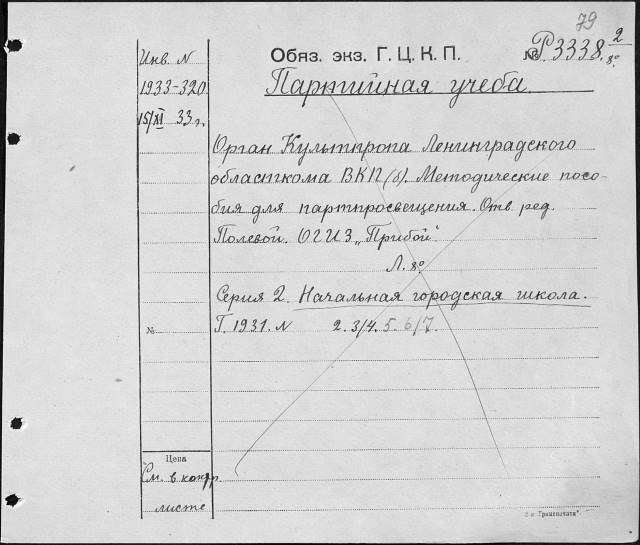 79
Инв. N
1933-320
15/XI 33 г.
Обяз. экз. Г. Ц. К. П.
№ Р3338. 2
8º
Партийная учеба.
Орган Культпропа Ленинградского
областкома ВКП(б). Методические посо-
бия для партпросвещения. Отв ред.
Полевой. ОГИЗ „Прибой".
Л. 8º
Серия 2. Начальная городская школа.
№
Г. 1931. N 2. 3/4. 5. 6/7.
Цена
См. в контр.
листе